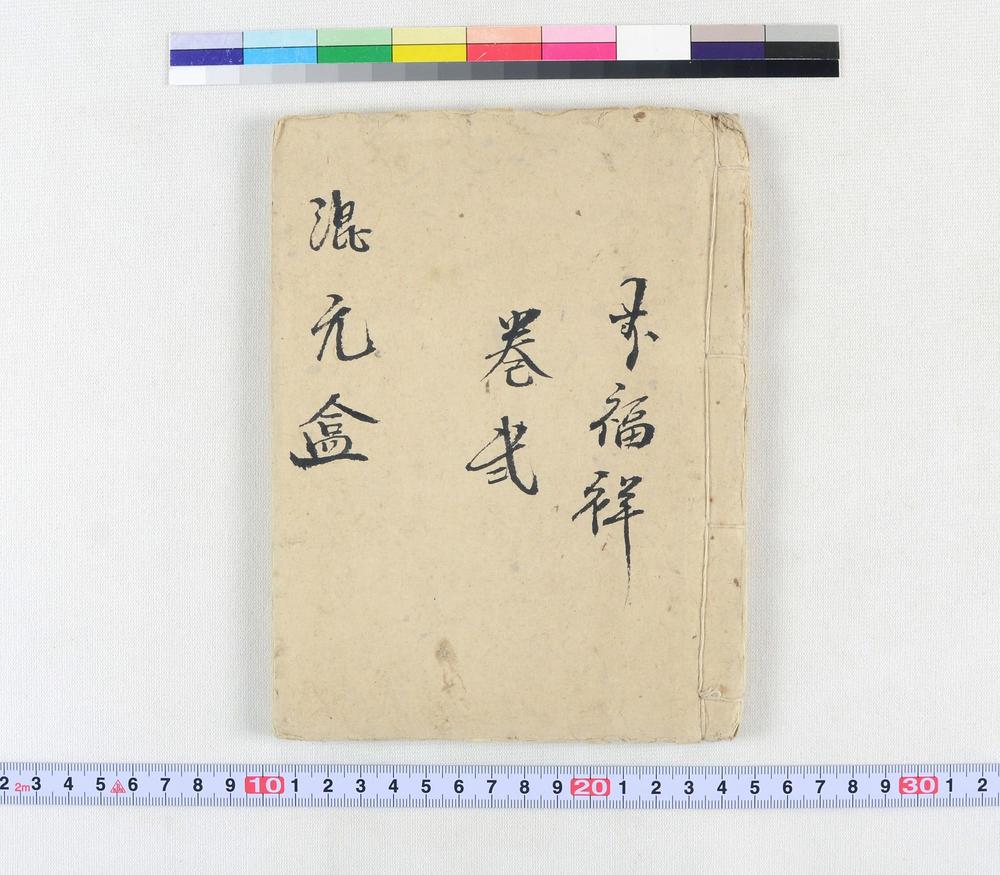 福祥
卷弍
混元盒
2 2m 3 4 5 6 7 8 9 10 1 2 3 4 5 6 7 8 9 20 1 2 3 4 5 6 7 8 9 30 1 2